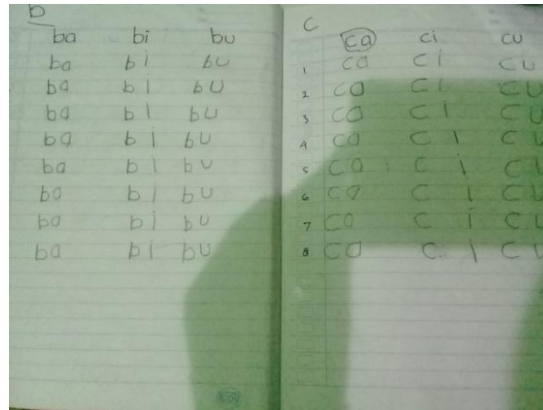 b
ba bi bu
ba bi bu
ba bi bu
ba bi bu
ba bi bu
ba bi bu
ba bi bu
ba bi bu
ba bi bu
C
ca ci cu
1 ca ci cu
2 ca ci cu
3 ca ci cu
4 ca ci cu
5 ca ci cu
6 ca ci cu
7 ca ci cu
8 ca ci cu